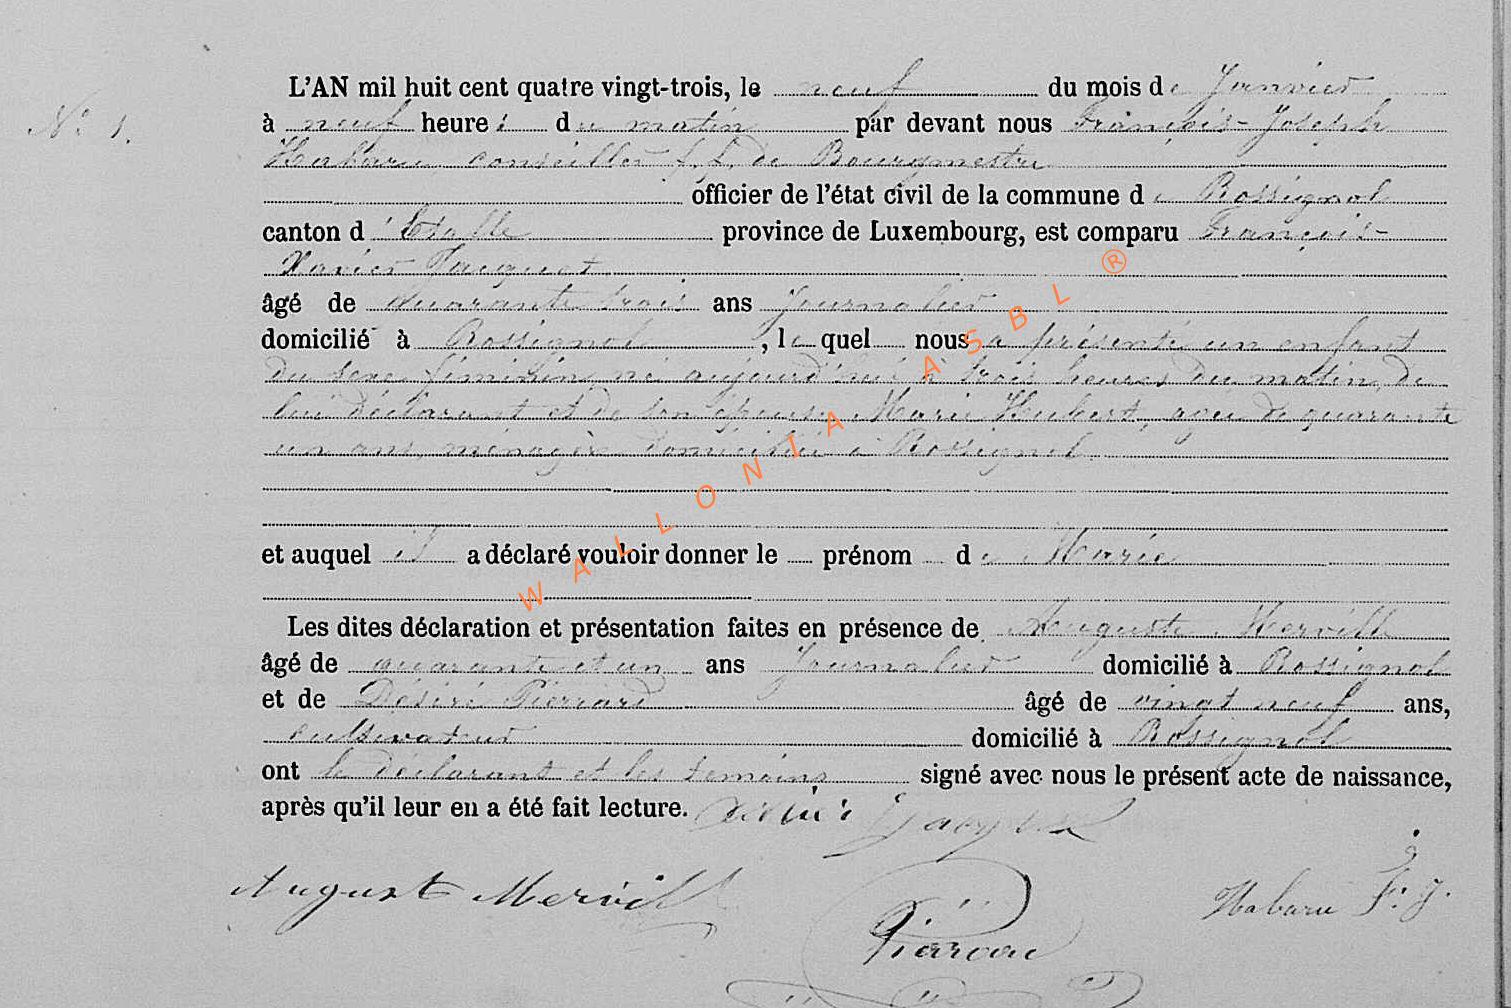 N° 1.
L'AN mil huit cent quatre vingt-trois, le neuf du mois de Janvier
à neuf heures du matin par devant nous François-Joseph
Habaru, conseiller f.f. de Bourgmestre
officier de l'état civil de la commune de Rossignol
canton d'Etalle province de Luxembourg, est comparu François-
Xavier Jacquet
âgé de quarante trois ans journalier
domicilié à Rossignol, lequel nous a présenté un enfant
du sexe féminin, né aujourd'hui à trois heures du matin, de
lui déclarant et de son épouse Marie Hubert, agée de quarante
un ans, ménagère domiciliée à Rossignol
et auquel il a déclaré vouloir donner le prénom de Marie
Les dites déclaration et présentation faites en présence de Auguste Merville
âgé de quarante et un ans Journalier domicilié à Rossignol
et de Désiré Pierrard âgé de vingt neuf ans,
cultivateur domicilié à Rossignol
ont le déclarant et les temoins signé avec nous le présent acte de naissance,
après qu'il leur en a été fait lecture. Jacquet
August Mervill Habaru F. J.
WALLONIA ASBL ®